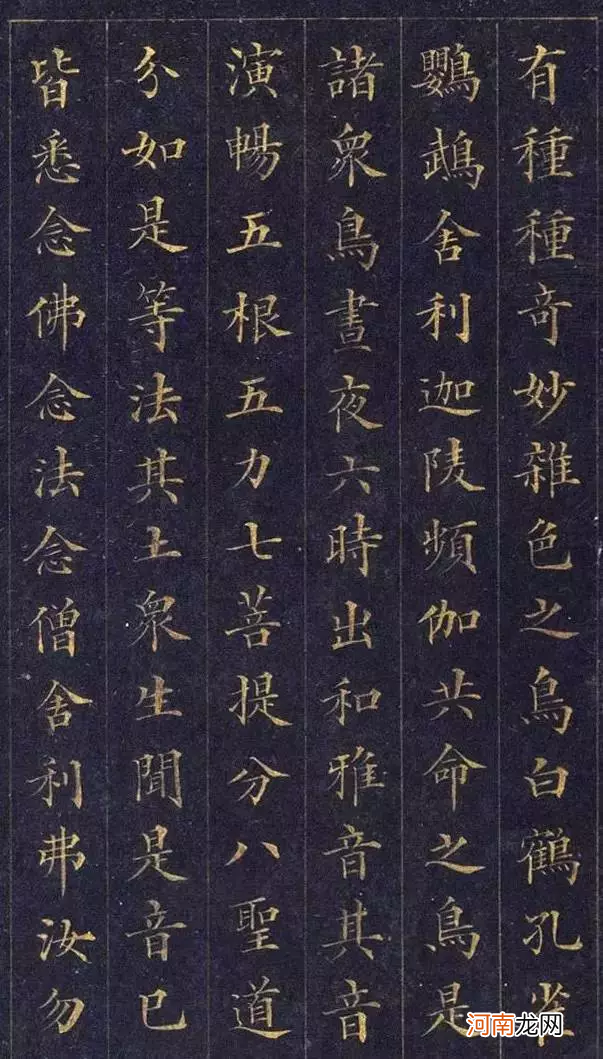 有種種奇妙雜色之鳥白鶴孔雀
鸚鵡舍利迦陵頻伽共命之鳥是
諸衆鳥晝夜六時出和雅音其音
演暢五根五力七菩提分八聖道
分如是等法其土衆生聞是音已
皆悉念佛念法念僧舍利弗汝勿
河南龙网